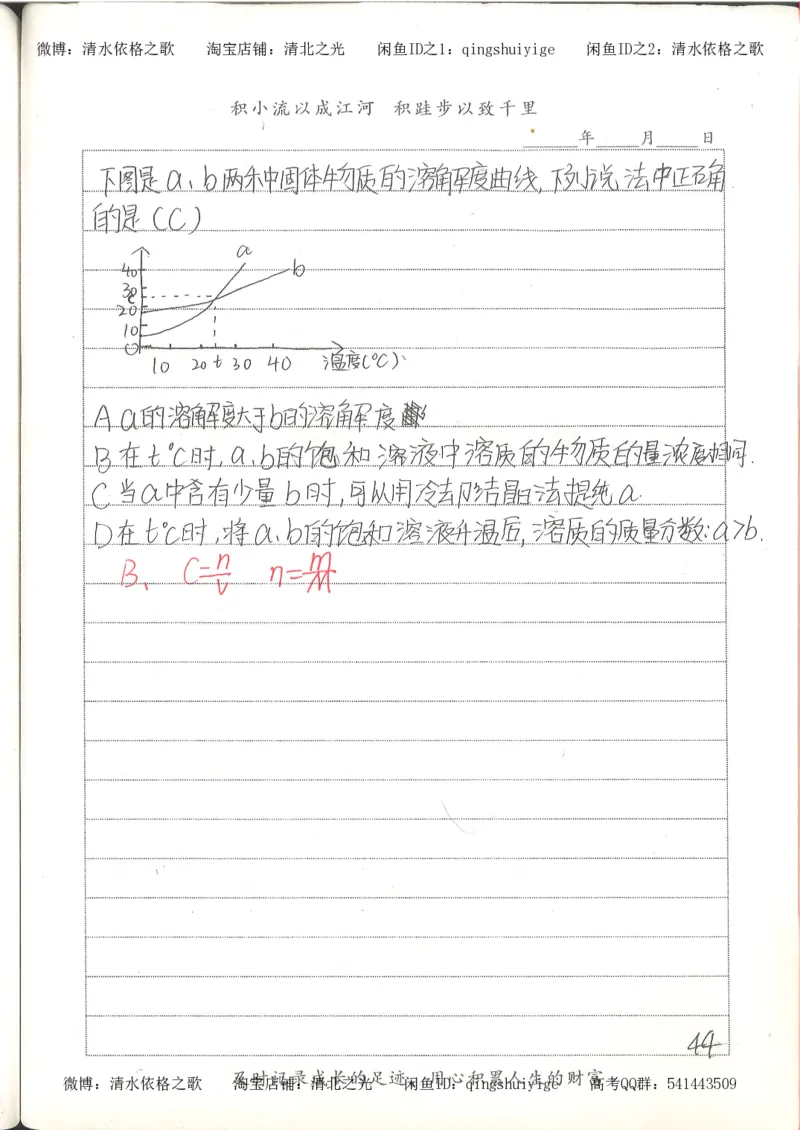 微博：清水依格之歌 淘宝店铺：清北之光 闲鱼ID之1：qingshuiyige 闲鱼ID之2：清水依格之歌
积小流以成江河 积跬步以致千里
年 月 日
下图是a、b两种固体物质的溶解度曲线,下列说法中正确
的是(C)
a
b
40
30
20
10
0
10 20 t 30 40 温度(℃)
A a的溶解度大于b的溶解度
B 在t℃时,a、b的饱和溶液中溶质的物质的量浓度相同.
C 当a中含有少量b时,可以用冷却结晶法提纯a
D 在t℃时,将a、b的饱和溶液升温后,溶质的质量分数:a>b.
B、 C=n/V n=m/M
44
及时记录成长的足迹 用心积累人生的财富
微博：清水依格之歌 淘宝店铺：清北之光 闲鱼ID：qingshuiyige 高考QQ群：541443509